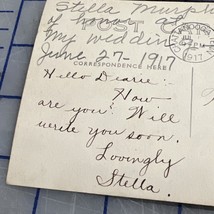 Stella Murph
of honor at
POST C
my weddin
June 27-1917
CORRESPONDENCE HERE
Hello Dearie:-
How
are you? Will
write you soon.
Lovingly
Stella.
1917